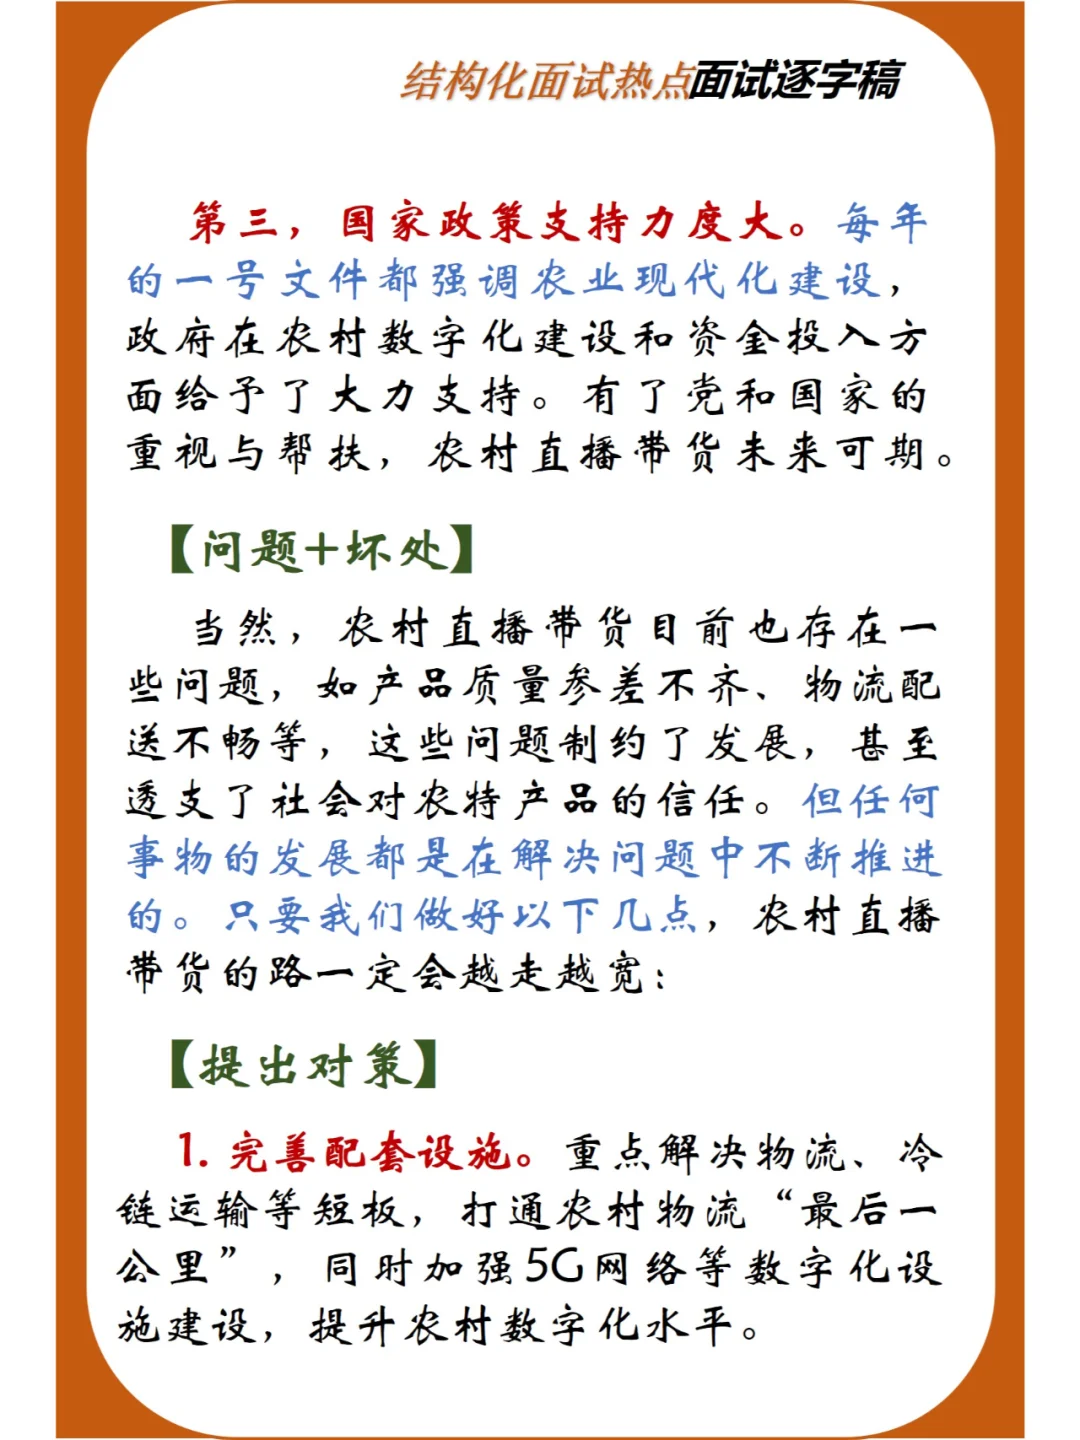 结构化面试热点面试逐字稿
第三，国家政策支持力度大。每年
的一号文件都强调农业现代化建设，
政府在农村数字化建设和资金投入方
面给予了大力支持。有了党和国家的
重视与帮扶，农村直播带货未来可期。
【问题+坏处】
当然，农村直播带货目前也存在一
些问题，如产品质量参差不齐、物流配
送不畅等，这些问题制约了发展，甚至
透支了社会对农特产品的信任。但任何
事物的发展都是在解决问题中不断推进
的。只要我们做好以下几点，农村直播
带货的路一定会越走越宽：
【提出对策】
1. 完善配套设施。重点解决物流、冷
链运输等短板，打通农村物流“最后一
公里”，同时加强5G网络等数字化设
施建设，提升农村数字化水平。